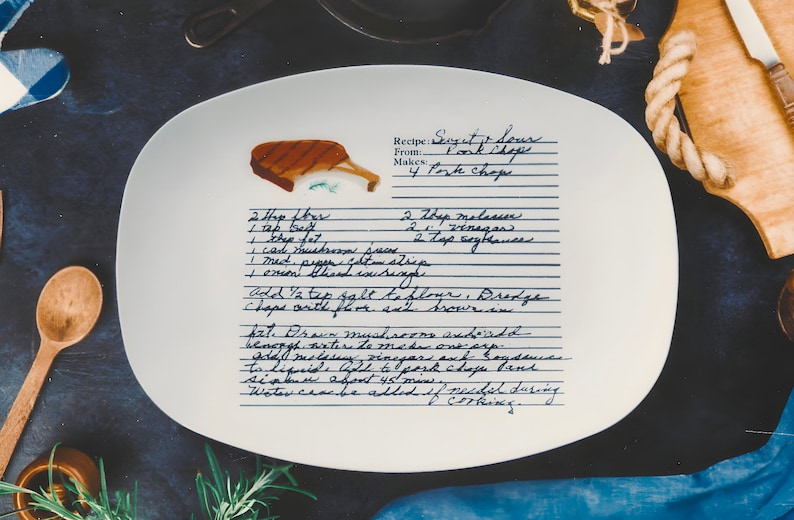 Recipe: Sweet & Sour
From: Pork Chops
Makes: 4 Pork Chops
2 tbsp flour
1 tsp salt
1 tbsp fat
1 can mushroom pieces
1 med. peper cut in strip
1 onion sliced in rings
2 Tbsp molasses
2 " vinegar
2 tsp soy sauce
Add 1/2 tsp salt to flour. Dredge
chops with flour and brown in
fat. Drain mushrooms and add
enough water to make one cup.
add molasses, vinegar and soy sauce
to liquid. Add to pork chops and
simmer about 45 min.
Water can be added if needed during
cooking.